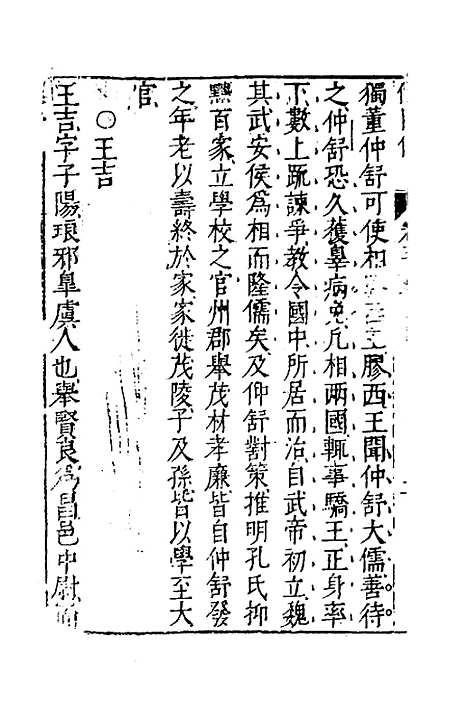 獨董仲舒可使相膠西王膠西王聞仲舒大儒善待
之仲舒恐久獲辠病免凡相兩國輒事驕王正身率
下數上疏諫爭教令國中所居而治自武帝初立魏
其武安侯爲相而隆儒矣及仲舒對策推明孔氏抑
黜百家立學校之官州郡舉茂材孝廉皆自仲舒發
之年老以壽終於家家徙茂陵子及孫皆以學至大
官
○王吉
王吉字子陽琅邪皐虞人也舉賢良爲昌邑中尉